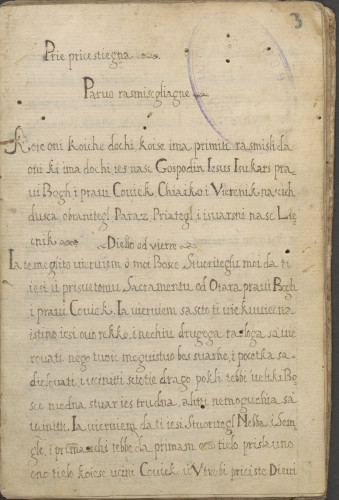 3
Prie pricestiegna
Paruo rasmiscgliagne
Koie oni koiche dochi, koise ima primiti rasmisli da
oni ki ima dochi ies nasc Gospodin Iesus Isukars pra-
ui Bogh i praui Couiek Chiaiko i Vierenik nascieh
dusca, obranitegl Paraz, Priategl i isuarsni nasc Liec
cnik Diello od viere
Ia temeglito vieruiem o moi Bosce Stuoriteghu moi da ti
iesi u prisuetomu Sacramentu od Otara praui Bogh
i praui Couiek. Ia vieruiem sascto ti viekuuiecna
istino iesi ouo rekko, i nechiu drugega rasloga sa vie
rouati nego tuoie mogustuo bes suarhe, i pocotka sa-
dielouati, i uciniti sctotie drago, pokli tebbi veliki Bo
sce niedna stuar ies trudna, aliti nemoguchia sa
uciniti. Ia vieruiem da ti iesi Stuoritegl Nebba, i Sem
gle, i primaiuchi tebbe da primam ono tielo prislauno
ono tielo koiese ucini Couiek u Vtrobi priciste Dieui